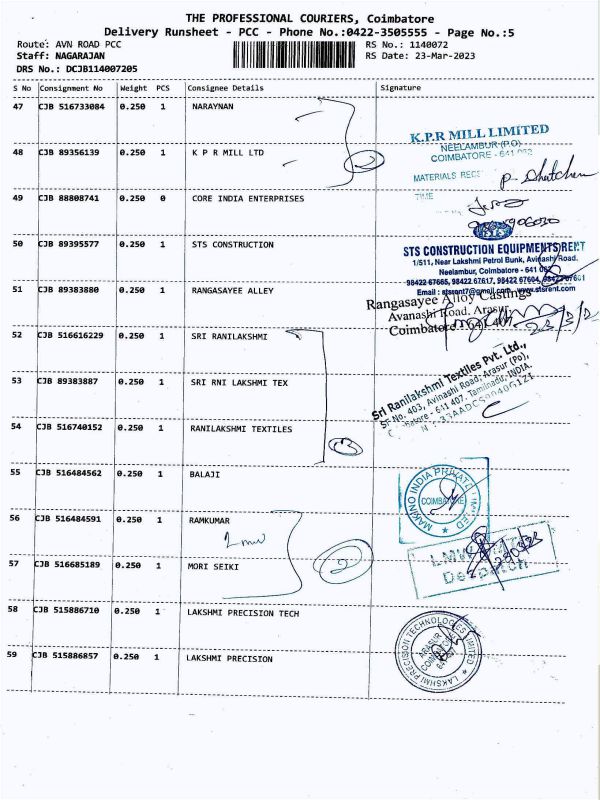 THE PROFESSIONAL COURIERS, Coimbatore
Delivery Runsheet - PCC - Phone No.:0422-3505555 - Page No.:5
Route: AVN ROAD PCC RS No.: 1140072
Staff: NAGARAJAN RS Date: 23-Mar-2023
DRS No.: DCJB114007205
S No Consignment No Weight PCS Consignee Details Signature
47 CJB 516733084 0.250 1 NARAYNAN
K.P.R MILL LIMITED
NEELAMBUR (P.O)
COIMBATORE - 641 062
48 CJB 89356139 0.250 1 K P R MILL LTD
2
MATERIALS REC
TIME
49 CJB 88808741 0.250 0 CORE INDIA ENTERPRISES
STS
50 CJB 89395577 0.250 1 STS CONSTRUCTION
STS CONSTRUCTION EQUIPMENTS RENT
1/511, Near Lakshmi Petrol Bunk, Avinashi Road.
Neelambur, Coimbatore - 641 062
98422 67665, 98422 67617, 98422 67604, 98422 67601
Email : stsrent7@gmail.com www.stsrent.com
51 CJB 89383880 0.250 1 RANGASAYEE ALLEY
Rangasayee Alloy Castings
Avanashi Road, Arasur
Coimbatore 641 407
52 CJB 516616229 0.250 1 SRI RANILAKSHMI
Sri Ranilakshmi Textiles Pvt. Ltd.,
SF No. 403, Avinashi Road, Arasur (Po),
641 407. Tamilnadu, INDIA.
53 CJB 89383887 0.250 1 SRI RNI LAKSHMI TEX
54 CJB 516740152 0.250 1 RANILAKSHMI TEXTILES
3
55 CJB 516484562 0.250 1 BALAJI
MAKINO INDIA PRIVATE LIMITED
COIMBATORE
56 CJB 516484591 0.250 1 RAMKUMAR
LMW
Despatch
57 CJB 516685189 0.250 1 MORI SEIKI
2
58 CJB 515886710 0.250 1 LAKSHMI PRECISION TECH
LAKSHMI PRECISION TECHNOLOGIES LIMITED
ARASUR
59 CJB 515886857 0.250 1 LAKSHMI PRECISION